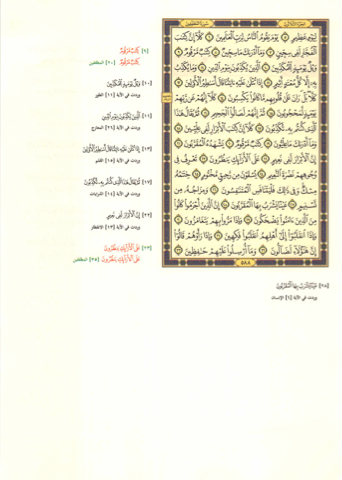 الجزء الثلاثون سورة المطففين
لِيَوْمٍ عَظِيمٍ ٥ يَوْمَ يَقُومُ ٱلنَّاسُ لِرَبِّ ٱلْعَٰلَمِينَ ٦ كَلَّآ إِنَّ كِتَٰبَ
ٱلْفُجَّارِ لَفِى سِجِّينٍ ٧ وَمَآ أَدْرَىٰكَ مَا سِجِّينٌ ٨ كِتَٰبٌ مَّرْقُومٌ ٩
وَيْلٌ يَوْمَئِذٍ لِّلْمُكَذِّبِينَ ١٠ ٱلَّذِينَ يُكَذِّبُونَ بِيَوْمِ ٱلدِّينِ ١١ وَمَا يُكَذِّبُ
بِهِۦٓ إِلَّا كُلُّ مُعْتَدٍ أَثِيمٍ ١٢ إِذَا تُتْلَىٰ عَلَيْهِ ءَايَٰتُنَا قَالَ أَسَٰطِيرُ ٱلْأَوَّلِينَ ١٣
كَلَّا بَلْ رَانَ عَلَىٰ قُلُوبِهِم مَّا كَانُوا۟ يَكْسِبُونَ ١٤ كَلَّآ إِنَّهُمْ عَن رَّبِّهِمْ
يَوْمَئِذٍ لَّمَحْجُوبُونَ ١٥ ثُمَّ إِنَّهُمْ لَصَالُوا۟ ٱلْجَحِيمِ ١٦ ثُمَّ يُقَالُ هَٰذَا
ٱلَّذِى كُنتُم بِهِۦ تُكَذِّبُونَ ١٧ كَلَّآ إِنَّ كِتَٰبَ ٱلْأَبْرَارِ لَفِى عِلِّيِّينَ ١٨
وَمَآ أَدْرَىٰكَ مَا عِلِّيُّونَ ١٩ كِتَٰبٌ مَّرْقُومٌ ٢٠ يَشْهَدُهُ ٱلْمُقَرَّبُونَ ٢١
إِنَّ ٱلْأَبْرَارَ لَفِى نَعِيمٍ ٢٢ عَلَى ٱلْأَرَآئِكِ يَنظُرُونَ ٢٣ تَعْرِفُ فِى
وُجُوهِهِمْ نَضْرَةَ ٱلنَّعِيمِ ٢٤ يُسْقَوْنَ مِن رَّحِيقٍ مَّخْتُومٍ ٢٥ خِتَٰمُهُۥ
مِسْكٌ وَفِى ذَٰلِكَ فَلْيَتَنَافَسِ ٱلْمُتَنَٰفِسُونَ ٢٦ وَمِزَاجُهُۥ مِن
تَسْنِيمٍ ٢٧ عَيْنًا يَشْرَبُ بِهَا ٱلْمُقَرَّبُونَ ٢٨ إِنَّ ٱلَّذِينَ أَجْرَمُوا۟ كَانُوا۟
مِنَ ٱلَّذِينَ ءَامَنُوا۟ يَضْحَكُونَ ٢٩ وَإِذَا مَرُّوا۟ بِهِمْ يَتَغَامَزُونَ ٣٠
وَإِذَا ٱنقَلَبُوٓا۟ إِلَىٰٓ أَهْلِهِمُ ٱنقَلَبُوا۟ فَكِهِينَ ٣١ وَإِذَا رَأَوْهُمْ قَالُوٓا۟
إِنَّ هَٰٓؤُلَآءِ لَضَآلُّونَ ٣٢ وَمَآ أُرْسِلُوا۟ عَلَيْهِمْ حَٰفِظِينَ ٣٣
٥٨٨
[٩] كِتَٰبٌ مَّرْقُومٌ
كِتَٰبٌ مَّرْقُومٌ [٢٠] المطففين
[١٠] وَيْلٌ يَوْمَئِذٍ لِّلْمُكَذِّبِينَ
وردت في الآية [١١] الطور
[١١] ٱلَّذِينَ يُكَذِّبُونَ بِيَوْمِ ٱلدِّينِ
وردت في الآية [٢٦] المعارج
[١٣] إِذَا تُتْلَىٰ عَلَيْهِ ءَايَٰتُنَا قَالَ أَسَٰطِيرُ ٱلْأَوَّلِينَ
وردت في الآية [١٥] القلم
[١٧] ثُمَّ يُقَالُ هَٰذَا ٱلَّذِى كُنتُم بِهِۦ تُكَذِّبُونَ
وردت في الآية [١٤] الذاريات
[٢٢] إِنَّ ٱلْأَبْرَارَ لَفِى نَعِيمٍ
وردت في الآية [١٣] الانفطار
[٢٣] عَلَى ٱلْأَرَآئِكِ يَنظُرُونَ
عَلَى ٱلْأَرَآئِكِ يَنظُرُونَ [٣٥] المطففين
[٢٨] عَيْنًا يَشْرَبُ بِهَا ٱلْمُقَرَّبُونَ
وردت في الآية [٦] الإنسان